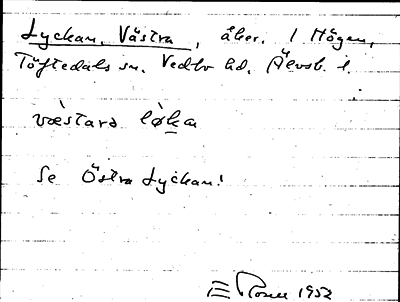 Lyckan, Västra, åker. / Högen,
Töftedals sn. Vedbo hd. Älvsb. l.
væ̀stara lø̀kan
Se Östra Lyckan!
E Rosell 1932